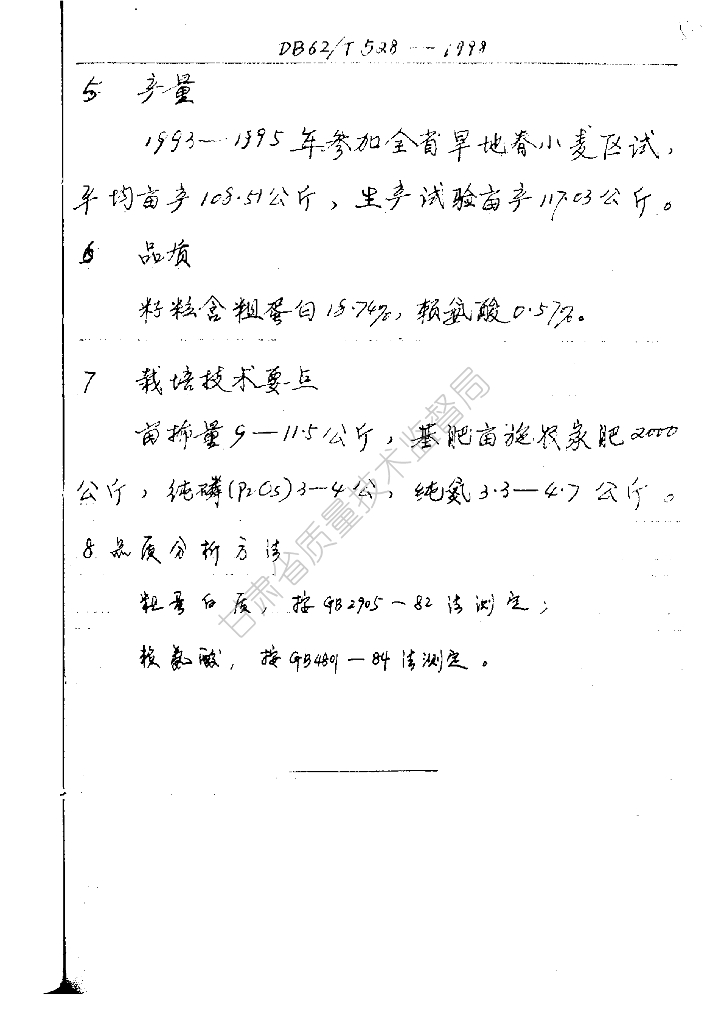 DB62/T 528--1998
5 产量
1993—1995年参加全省旱地春小麦区试，
平均亩产108.51公斤，生产试验亩产117.03公斤。
6 品质
籽粒含粗蛋白18.74%，赖氨酸0.57%。
7 栽培技术要点
亩播量9—11.5公斤，基肥亩施农家肥2000
公斤，纯磷(P2O5)3—4公，纯氮3.3—4.7公斤。
8 品质分析方法
粗蛋白质，按GB2905—82法测定；
赖氨酸，按GB4801—84法测定。
甘肃省质量技术监督局